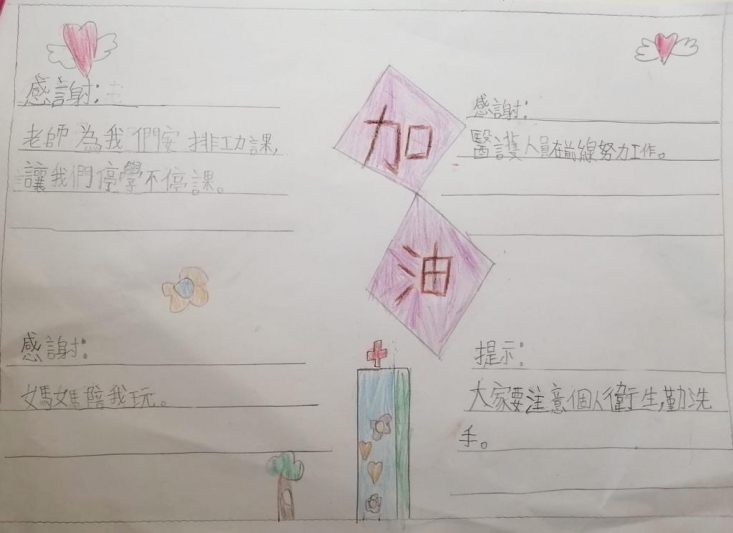 感謝：
老師為我們安排功課，
讓我們停學不停課。
加
油
感謝：
醫護人員在前線努力工作。
感謝：
媽媽陪我玩。
提示：
大家要注意個人衛生，勤洗
手。